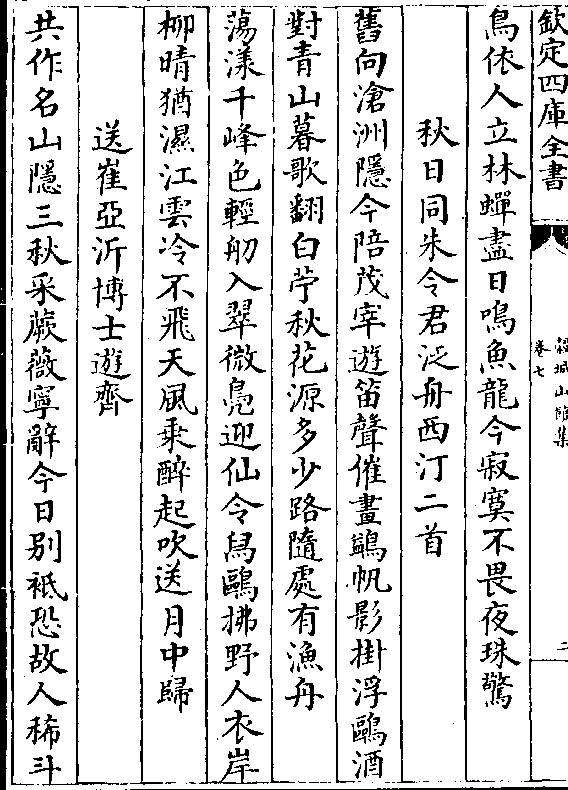 欽定四庫全書
穀城山館集
卷七
二
鳥依人立林蟬盡日鳴魚龍今寂寞不畏夜珠驚
秋日同朱令君泛舟西汀二首
舊向滄洲隱今陪茂宰遊笛聲催畫鷁帆影掛浮鷗酒
對青山暮歌翻白苧秋花源多少路隨處有漁舟
蕩漾千峰色輕舠入翠微鳧迎仙令舄鷗拂野人衣岸
柳晴猶濕江雲冷不飛天風乘醉起吹送月中歸
送崔亞沂博士遊齊
共作名山隱三秋采蕨薇寧辭今日别衹恐故人稀斗